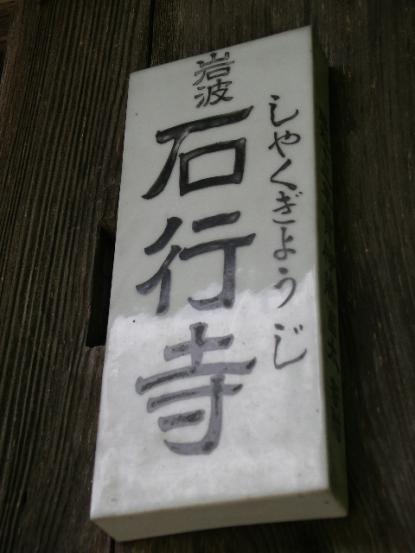 しゃくぎようじ
岩波
石行寺